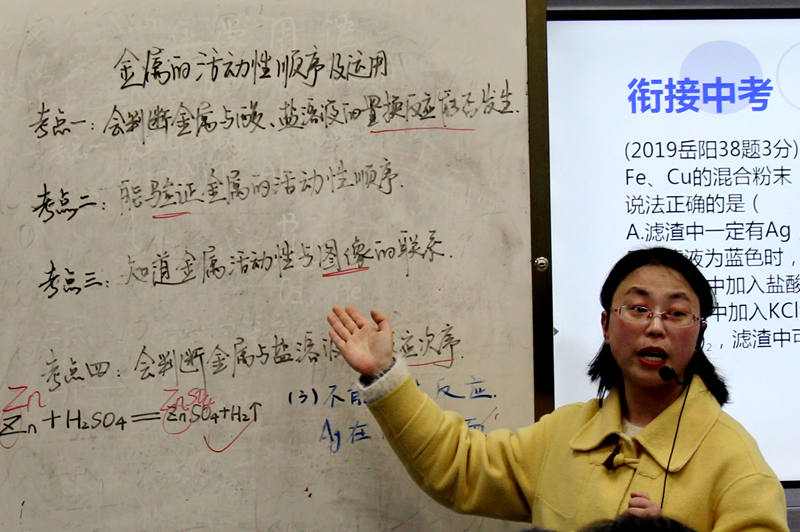 金属的活动性顺序及运用
考点一：会判断金属与酸、盐溶液的置换反应能否发生.
考点二：能验证金属的活动性顺序.
考点三：知道金属活动性与图像的联系.
考点四：会判断金属与盐溶液 应次序.
Zn ZnSO4
Zn+H2SO4=ZnSO4+H2↑
(3)不 反应.
Ag在
衔接中考
(2019岳阳38题3分)
Fe、Cu的混合粉末
说法正确的是（
A.滤渣中一定有Ag
液为蓝色时，
中加入盐酸
中加入KCl
2，滤渣中可